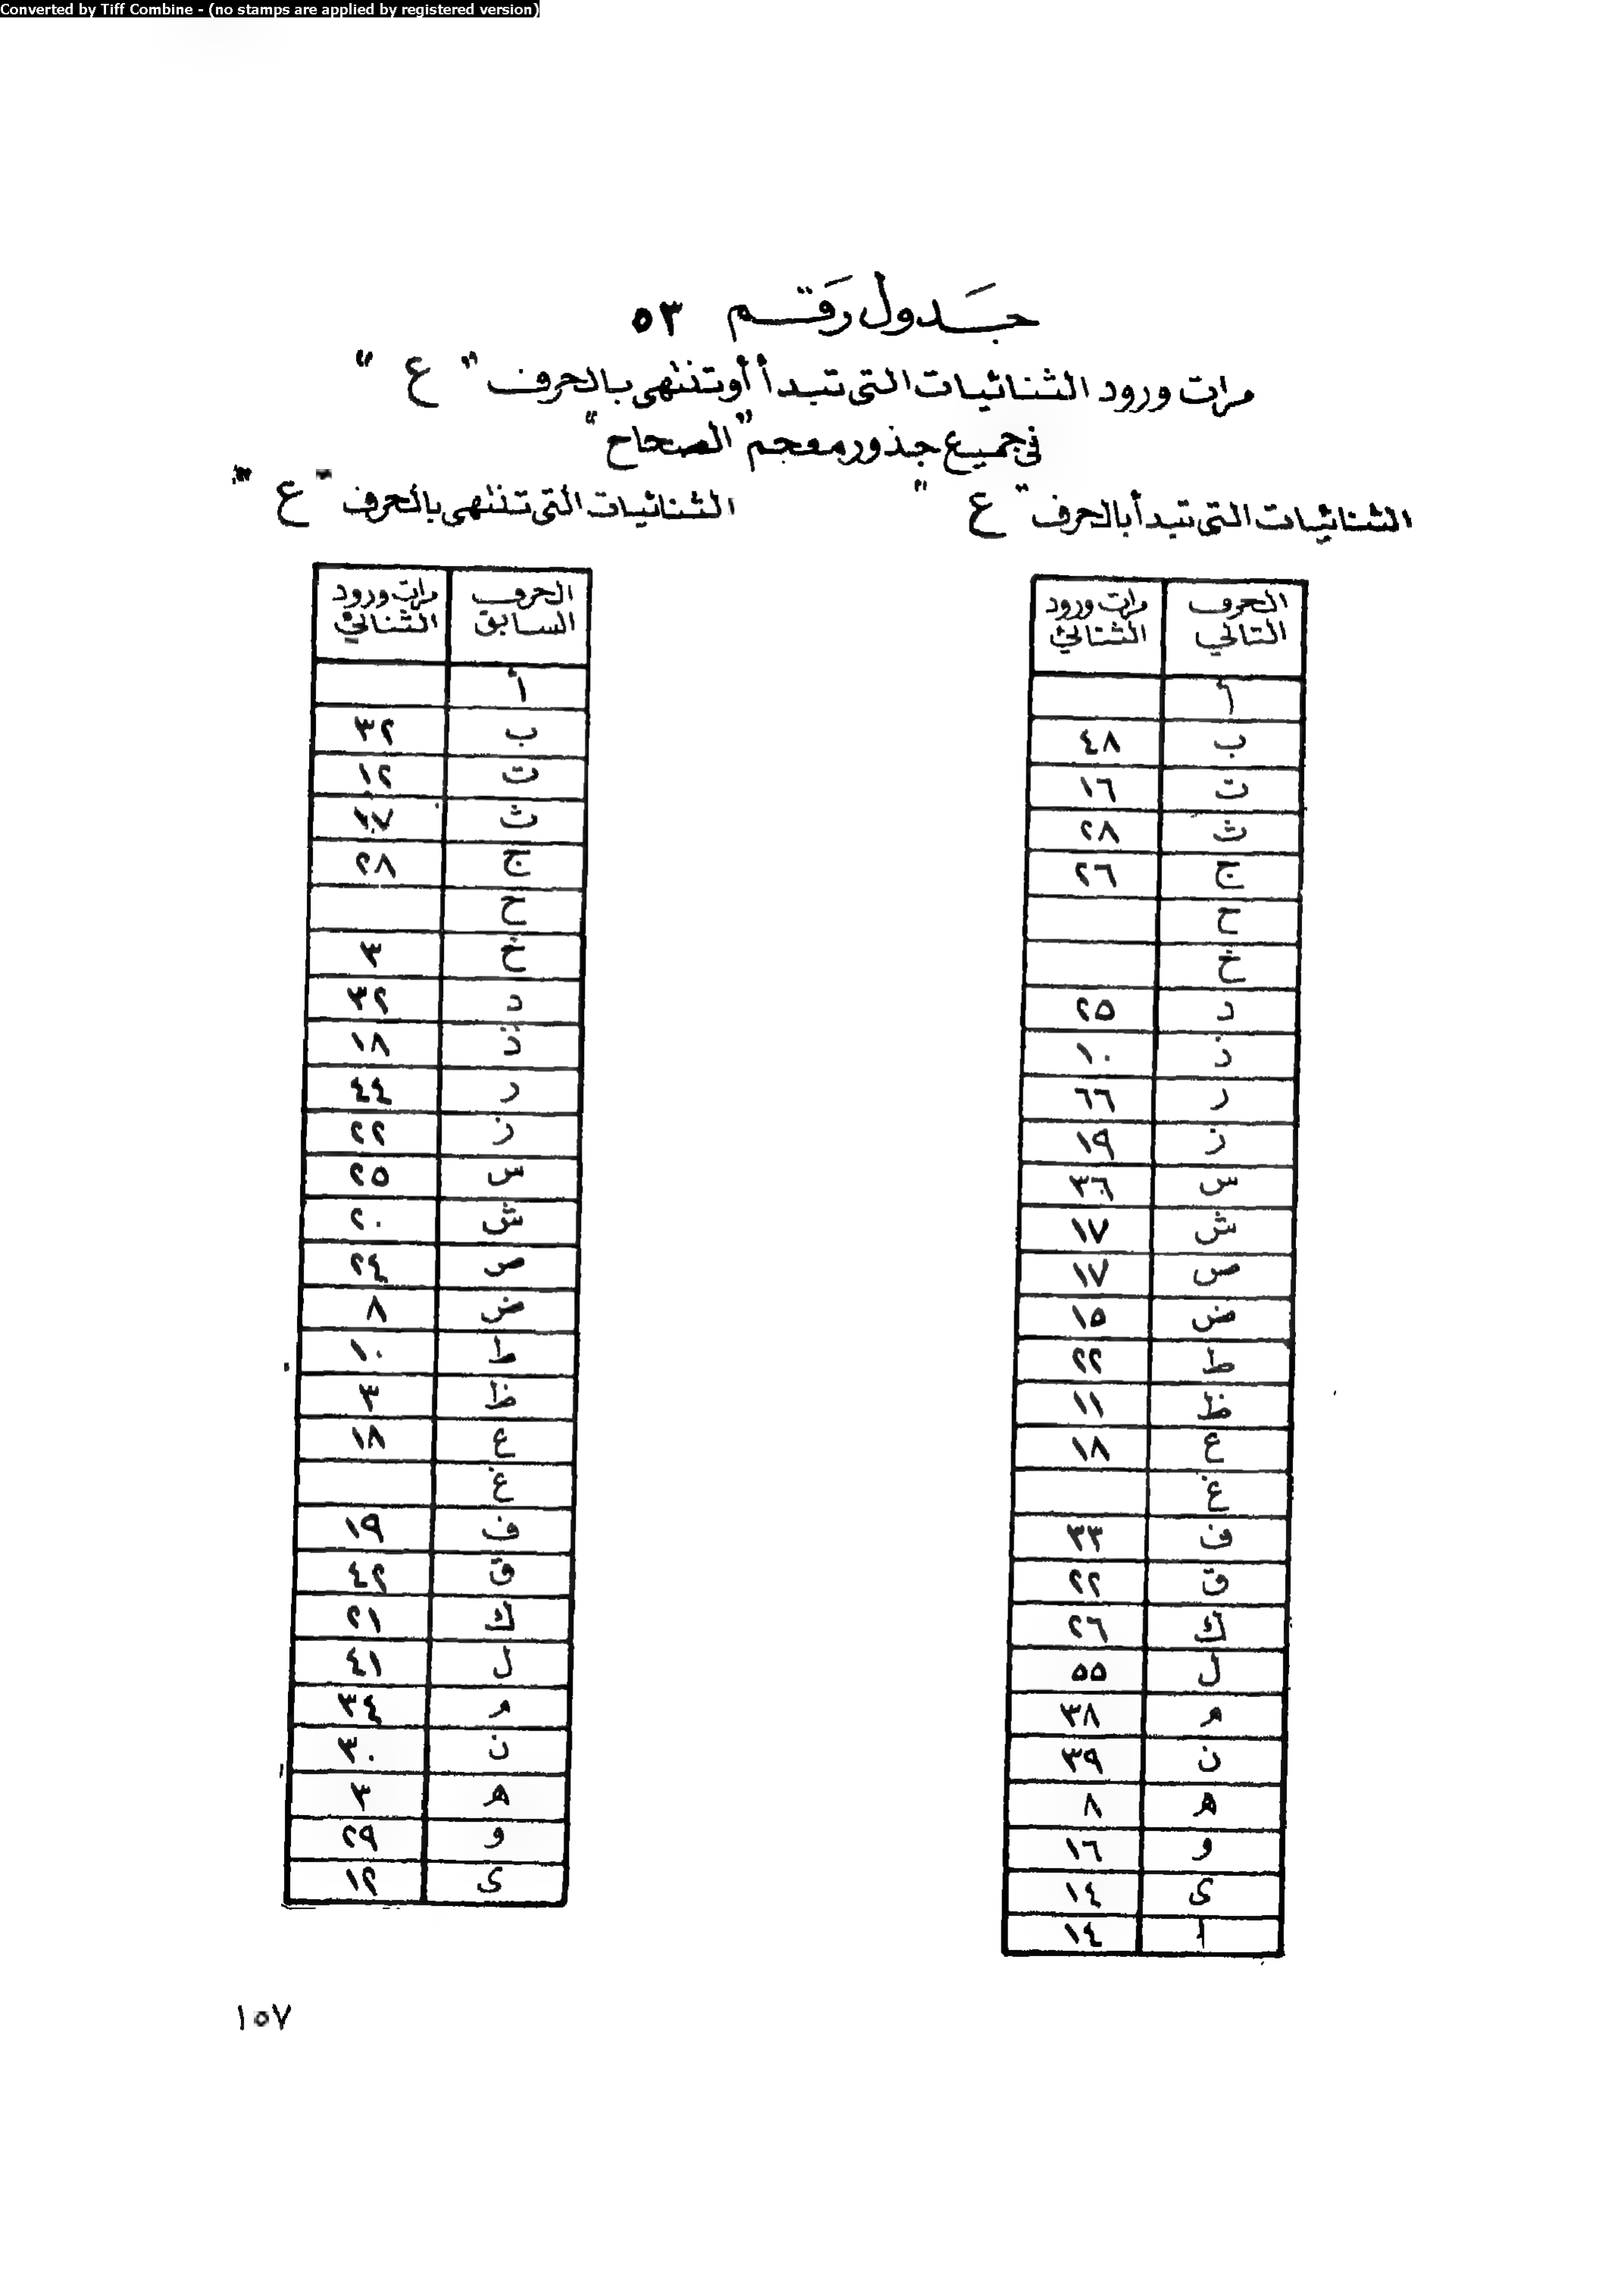 Converted by Tiff Combine - (no stamps are applied by registered version)
جَدول رَقم ٥٣
مرات ورود الثنائيات التى تبدأ أو تنتهى بالحرف " ع "
فى جميع جذور معجم "الصحاح"
الثنائيات التى تبدأ بالحرف " ع "
الحرف التالي مرات ورود الثنائي
أ
ب ٤٨
ت ١٦
ث ٢٨
ج ٢٦
ح
خ
د ٢٥
ذ ١٠
ر ٦٦
ز ١٩
س ٣٦
ش ١٧
ص ١٧
ض ١٥
ط ٢٢
ظ ١١
ع ١٨
غ
ف ٣٣
ق ٢٢
ك ٢٦
ل ٥٥
م ٣٨
ن ٣٩
ه ٨
و ١٦
ى ١٤
ا ١٤
الثنائيات التى تنتهى بالحرف " ع "
الحرف السابق مرات ورود الثنائي
أ
ب ٣٢
ت ١٢
ث ١٧
ج ٢٨
ح
خ ٣
د ٣٢
ذ ١٨
ر ٤٤
ز ٢٢
س ٢٥
ش ٢٠
ص ٢٤
ض ٨
ط ١٠
ظ ٣
ع ١٨
غ
ف ١٩
ق ٤٢
ك ٢١
ل ٤١
م ٣٤
ن ٣٠
ه ٣
و ٢٩
ى ١٢
١٥٧